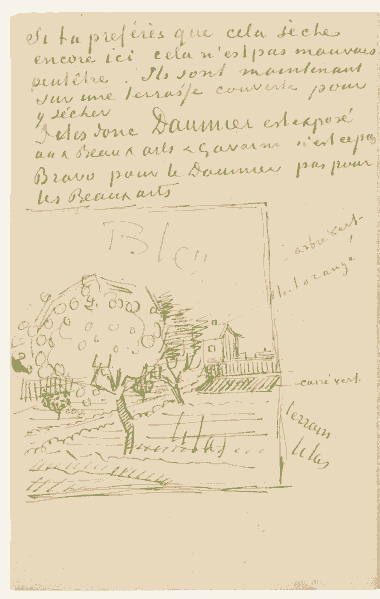 Si tu préfères que cela sèche
encore ici cela n'est pas mauvais
peutêtre. Ils sont maintenant
sur une terrasse couverte pour
y sécher
donc Daumier est exposé
aux Beaux arts & Gavarni n'est ce pas
Bravo pour le Daumier pas pour
les Beaux arts
Bleu
arbre vert
orangé
carré vert.
terrain
lilas
lilas